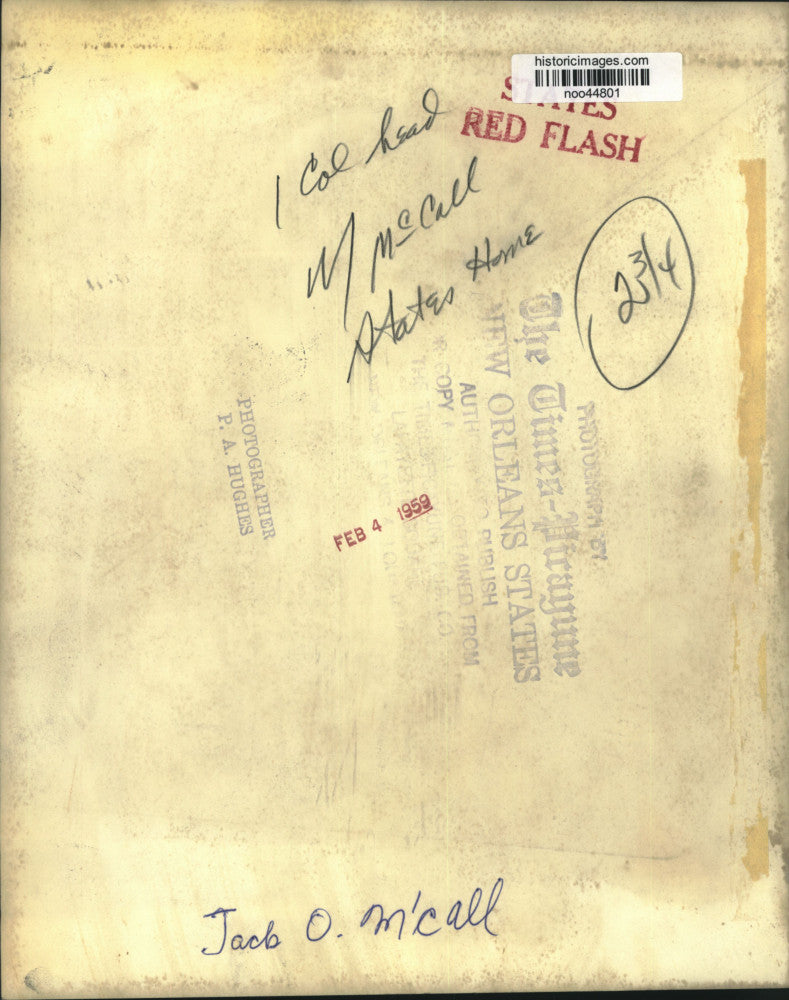 historicimages.com
noo44801
STATES
RED FLASH
1 Col head
W/ McCall
States Home
2 3/4
PHOTOGRAPH BY
The Times-Picayune
NEW ORLEANS STATES
AUTH PUBLISH
OR COPY OBTAINED FROM
PHOTOGRAPHER
P. A. HUGHES
FEB 4 1959
Jack O. M'call